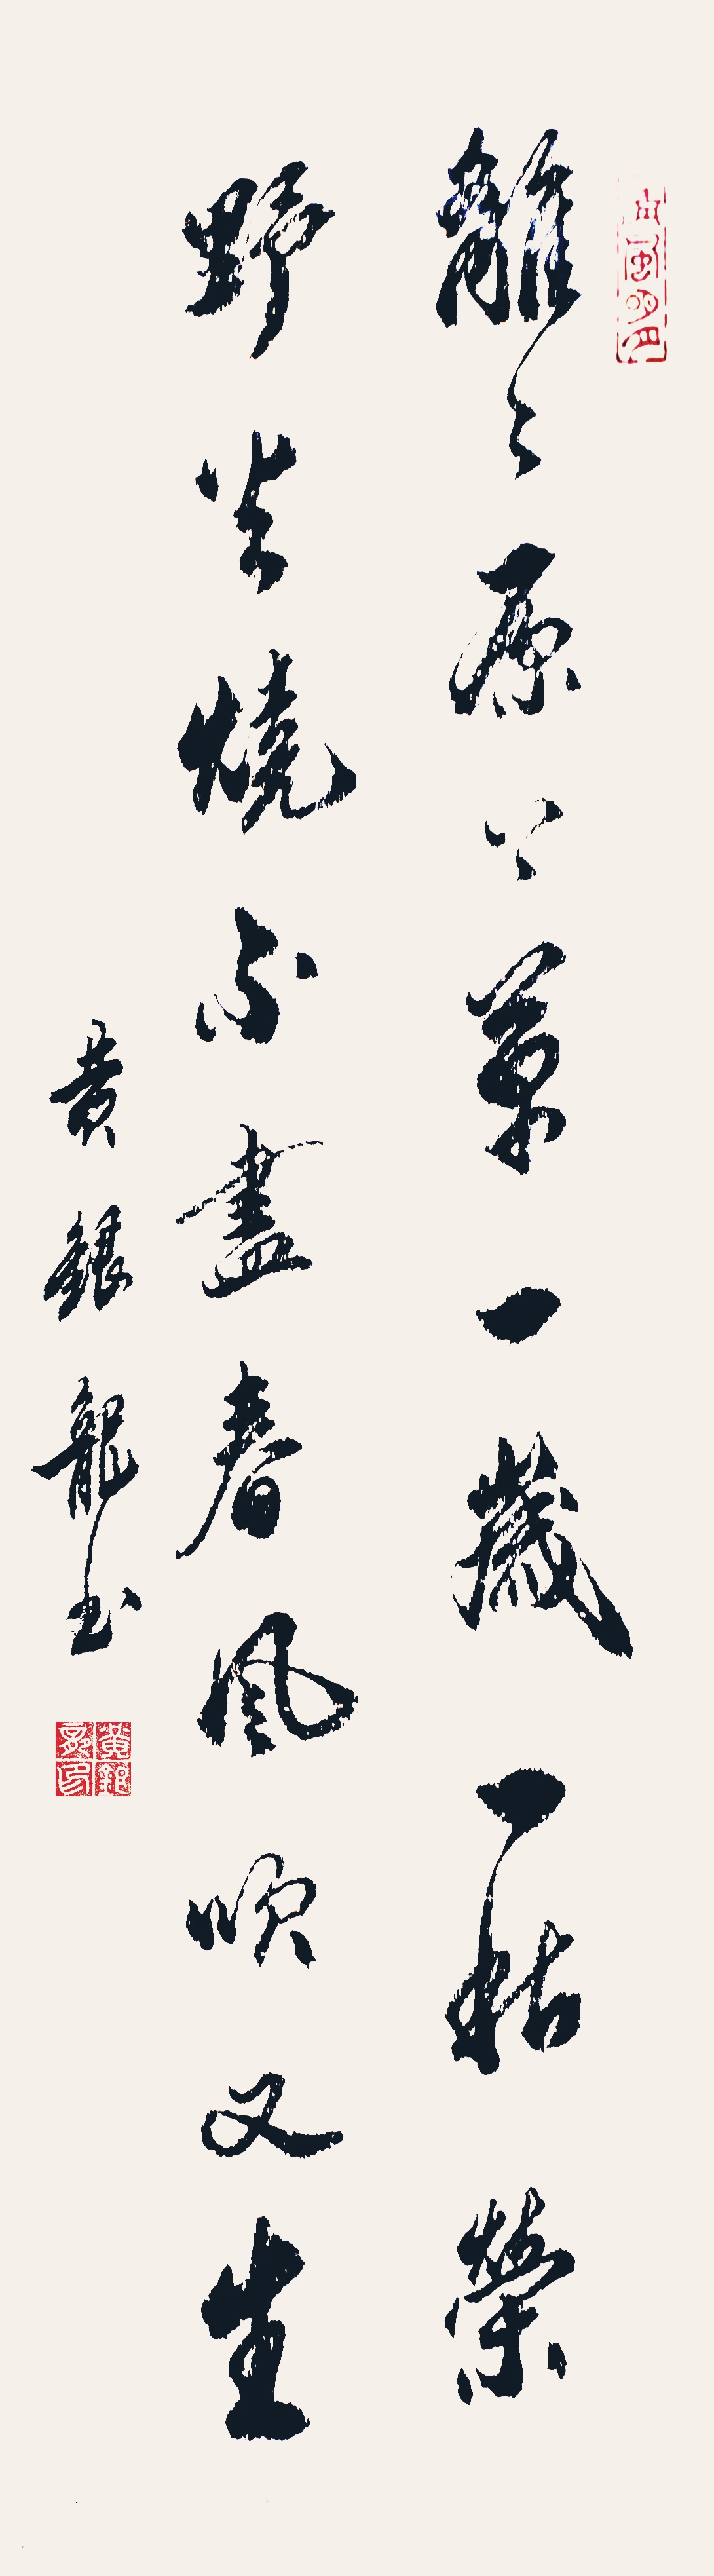 離々原上草一歲一枯榮
野火燒不盡春風吹又生
黄銀龍書
黄銀龍印